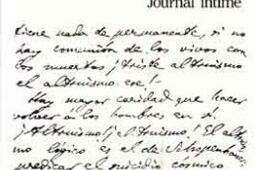 Journal intime
tiene nada de permanente, si no
hay comunión de los vivos con
los muertos ¡triste altruismo
el altruismo ese!
Hay mayor caridad que hacer
volver á los hombres en sí
¡Altruismo! ¡altruismo! El altruis
mo lógico es el de Schopenhauer
predicar el suicidio cósmico